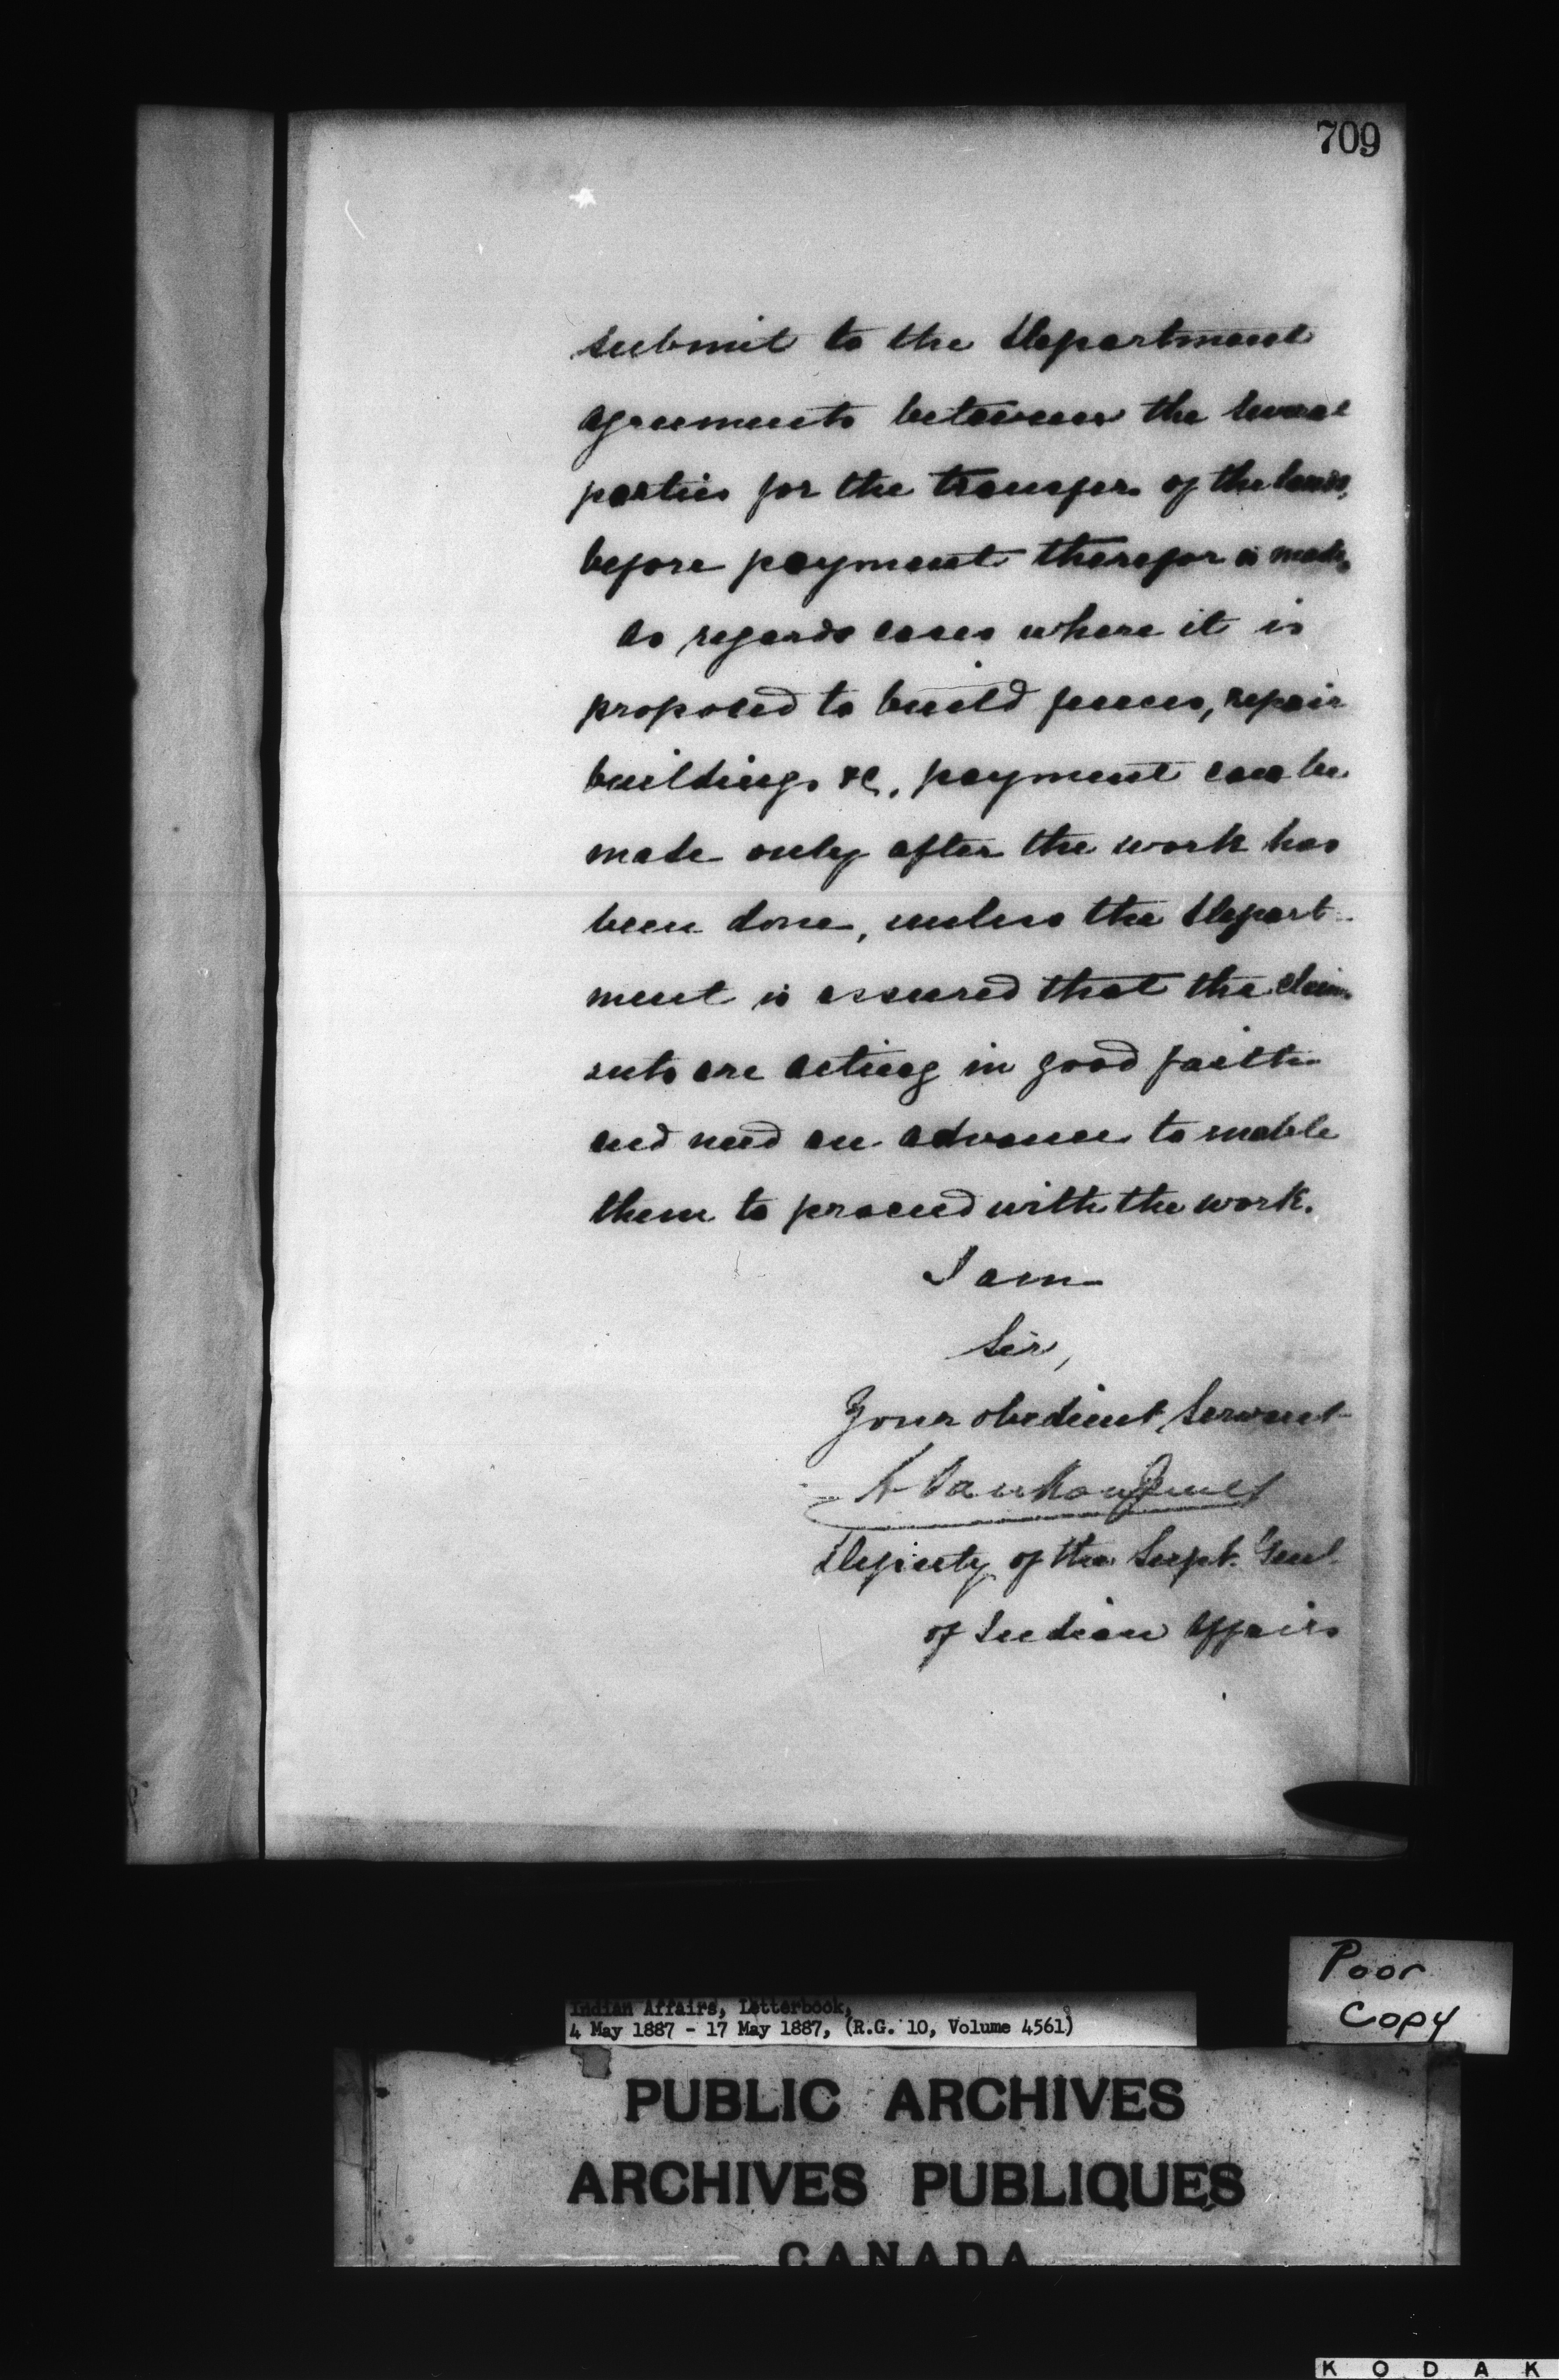 709
submit to the Department
agreements between the several
parties for the transfer of the lands,
before payment therefor is made.
As regards cases where it is
proposed to build fences, repair
buildings &c, payment can be
made only after the work has
been done, unless the Depart-
ment is assured that the claim-
ants are acting in good faith
and need an advance to enable
them to proceed with the work.
I am
Sir,
Your obedient Servant
L. VanKoughnet
Deputy of the Supt. Genl
of Indian Affairs
Poor
Copy
Indian Affairs, Letterbook,
4 May 1887 - 17 May 1887, (R.G. 10, Volume 4561)
PUBLIC ARCHIVES
ARCHIVES PUBLIQUES
CANADA
KODAK